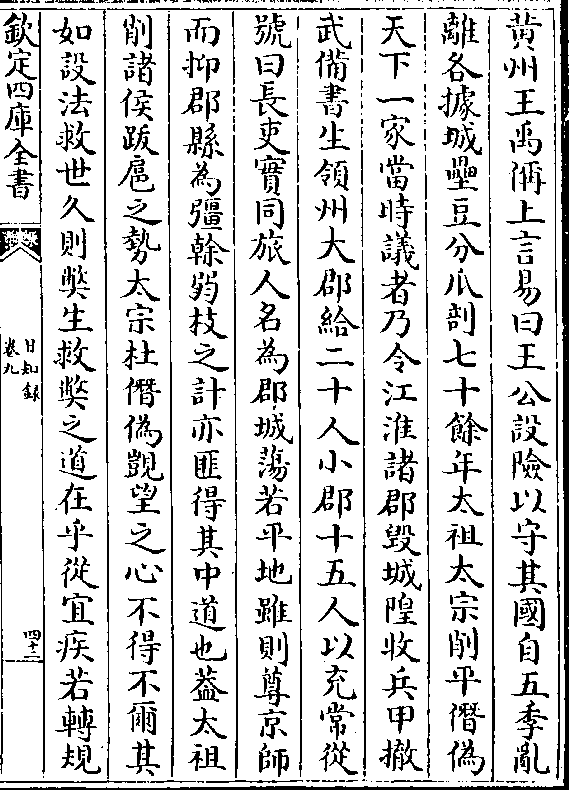 黄州王禹偁上言易曰王公設險以守其國自五季亂
離各據城壘豆分瓜剖七十餘年太祖太宗削平僭偽
天下一家當時議者乃令江淮諸郡毁城隍收兵甲撤
武備書生領州大郡給二十人小郡十五人以充常從
號曰長吏實同旅人名為郡城蕩若平地雖則尊京師
而抑郡縣為彊幹弱枝之計亦匪得其中道也葢太祖
削諸侯跋扈之勢太宗杜僭偽覬望之心不得不爾其
如設法救世久則弊生救弊之道在乎從宜疾若轉規
欽定四庫全書
日知錄
卷九
四十三